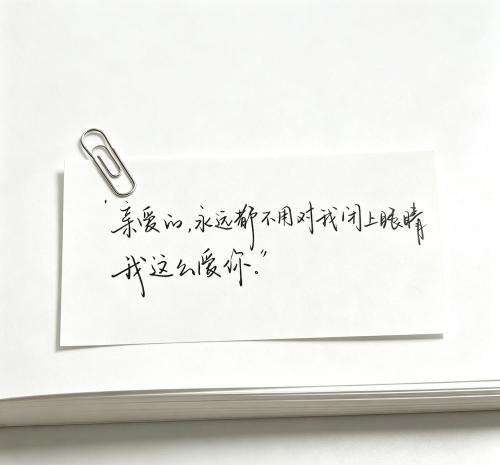 “亲爱的,永远都不用对我闭上眼睛
我这么爱你.”